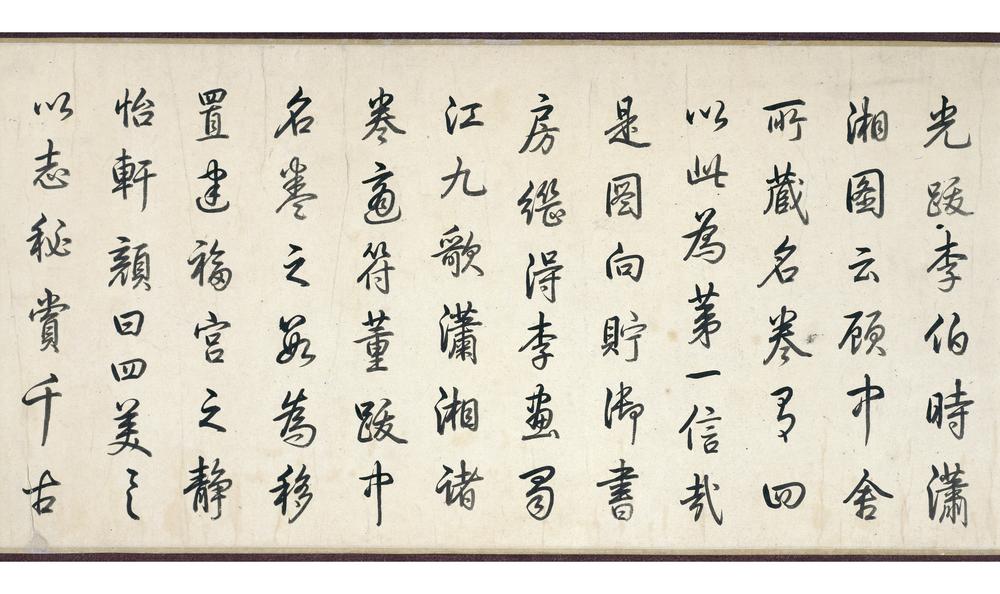 光跋李伯時瀟
湘圖云顧中舍
所藏名卷有四
以此為第一信哉
是圖向貯御書
房繼得李畫蜀
江九歌瀟湘諸
卷適符董跋中
名卷之數為移
置建福宮之靜
怡軒顏曰四美具
以志秘賞千古